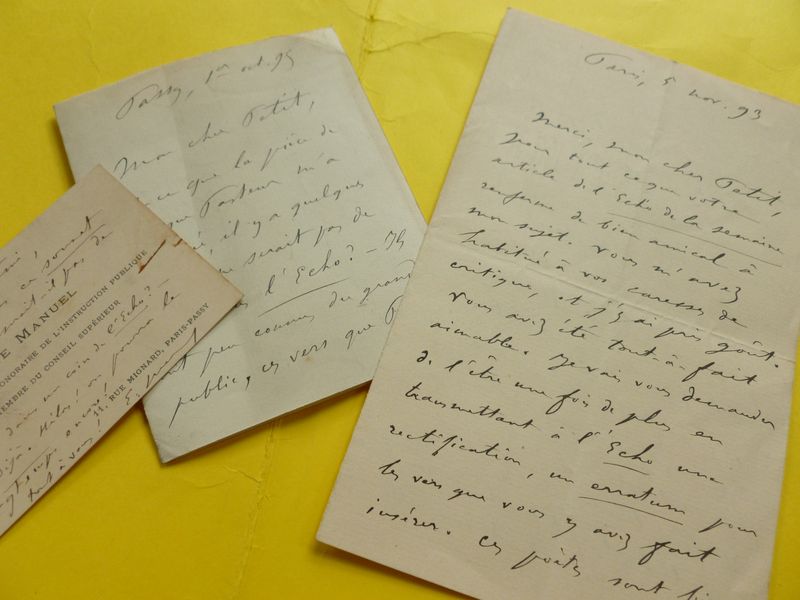 Paris, 5 nov. 93
Merci, mon cher Petit,
pour tout ce que votre
article de l'Echo de la semaine
renferme de bien amical à
mon sujet. Vous m'avez
habitué à vos caresses de
critique, et j'y ai pris goût.
Vous avez été tout-à-fait
aimable. Je vais vous demander
de l'être une fois de plus en
transmettant à l'Echo une
rectification, un erratum pour
les vers que vous y avez fait
insérer. Ces poètes sont
Passy, 1er oct. 95
Mon cher Petit,
ce que la pièce de
que Pasteur m'a
il y a quelques
serait pas de
l'Echo? - Ils
peu connus du grand
public, ces vers que
ce sonnet
il pas de
E MANUEL
ONORAIRE DE L'INSTRUCTION PUBLIQUE
MEMBRE DU CONSEIL SUPÉRIEUR
11, RUE MIGNARD, PARIS-PASSY
dans un coin de l'Echo?
on pourra le
encore!
tout à vous! E.